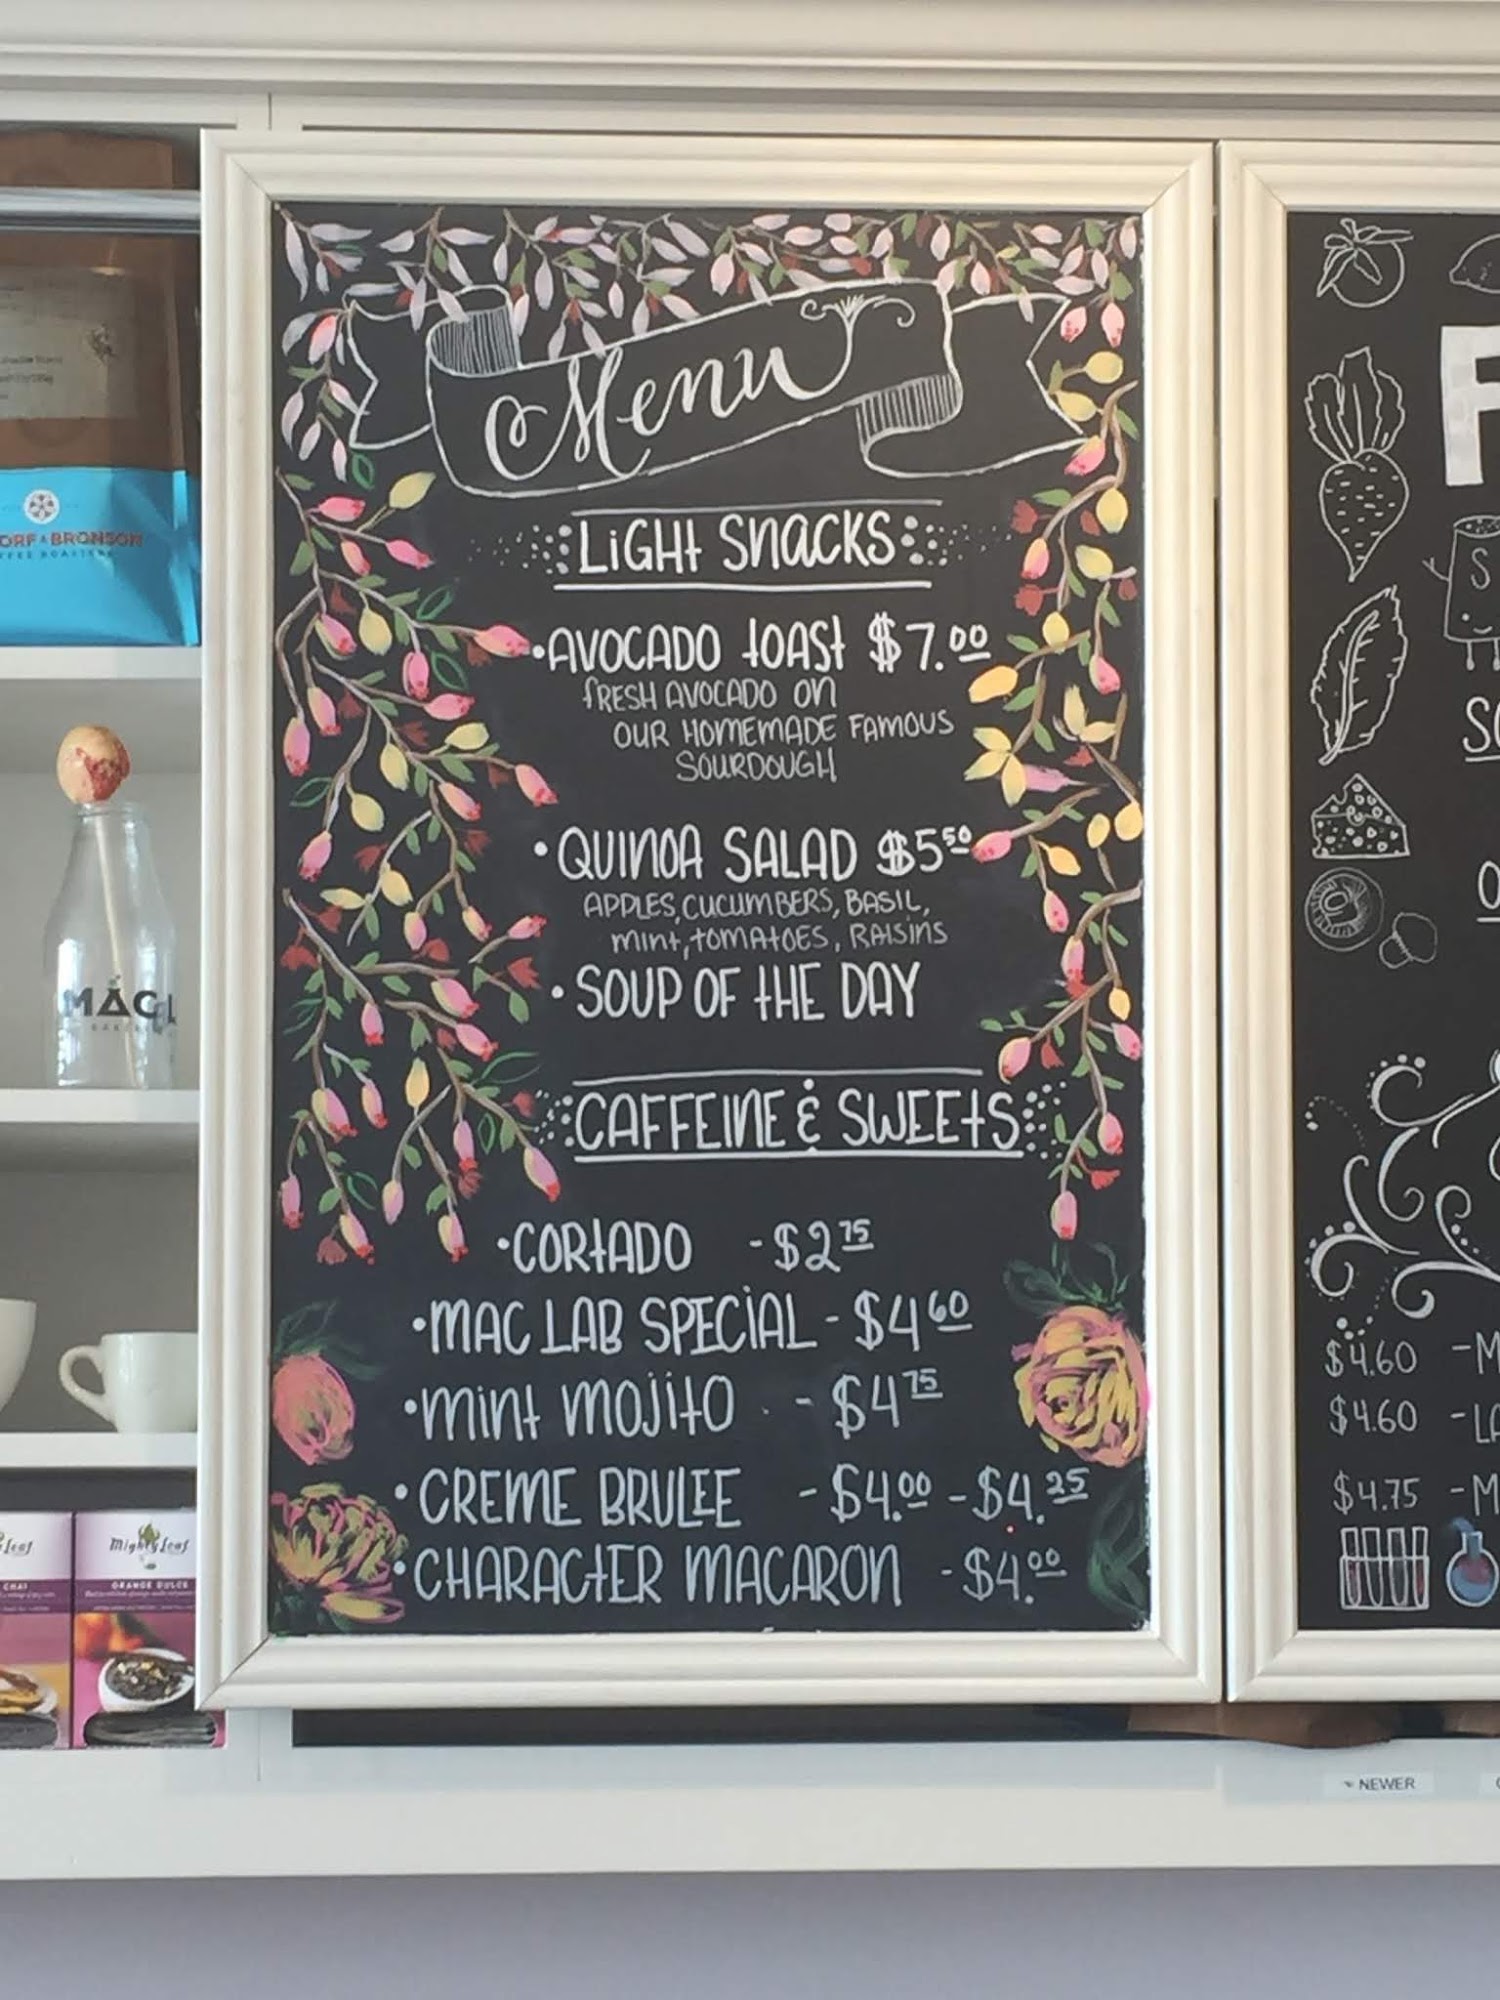 Menu
LIGHT SNACKS
•AVOCADO TOAST $7.00
FRESH AVOCADO ON
OUR HOMEMADE FAMOUS
SOURDOUGH
•QUINOA SALAD $5 50
APPLES, CUCUMBERS, BASIL,
MINT, TOMATOES, RAISINS
•SOUP OF THE DAY
CAFFEINE & SWEETS
•CORTADO -$2 75
•MAC LAB SPECIAL - $4 60
•MINT MOJITO - $4 75
•CREME BRULEE -$4.00 -$4.25
•CHARACTER MACARON -$4.00
ORF & BRONSON
MAC L
Mighty Leaf
ORANGE DULCE
CHAI
S
$4.60 -M
$4.60 -LA
$4.75 -M
NEWER